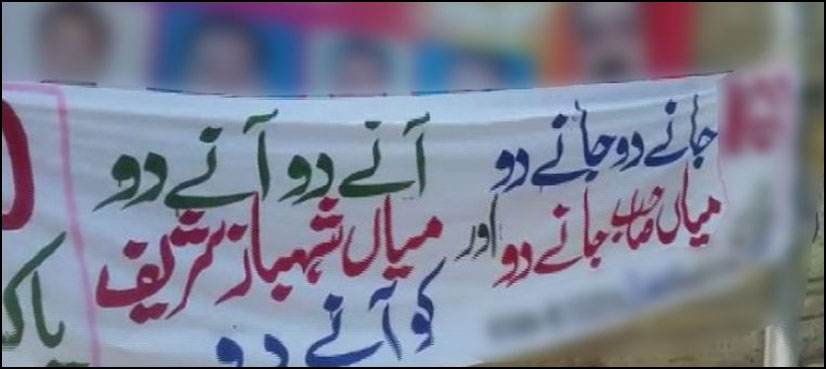 جانے دو جانے دو
میاں صاحب جانے دو
اور
آنے دو آنے دو
میاں شہباز شریف
کو آنے دو